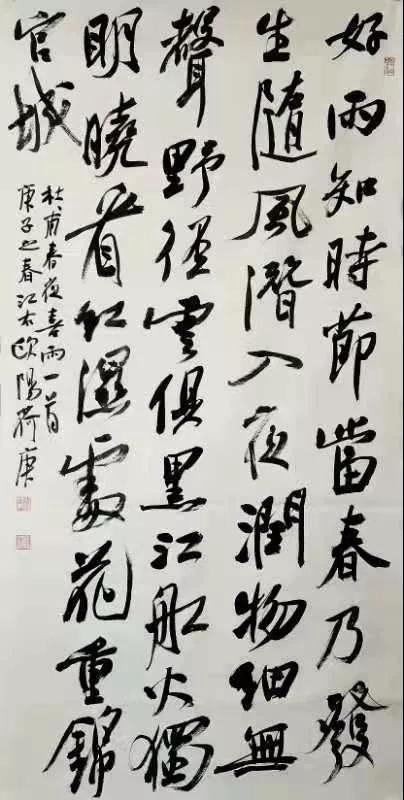 好雨知時節當春乃發
生隨風潛入夜潤物細無
聲野徑雲俱黑江船火獨
明曉看紅濕處花重錦
官城
杜甫春夜喜雨一首
庚子之春江右欧陽荷庚